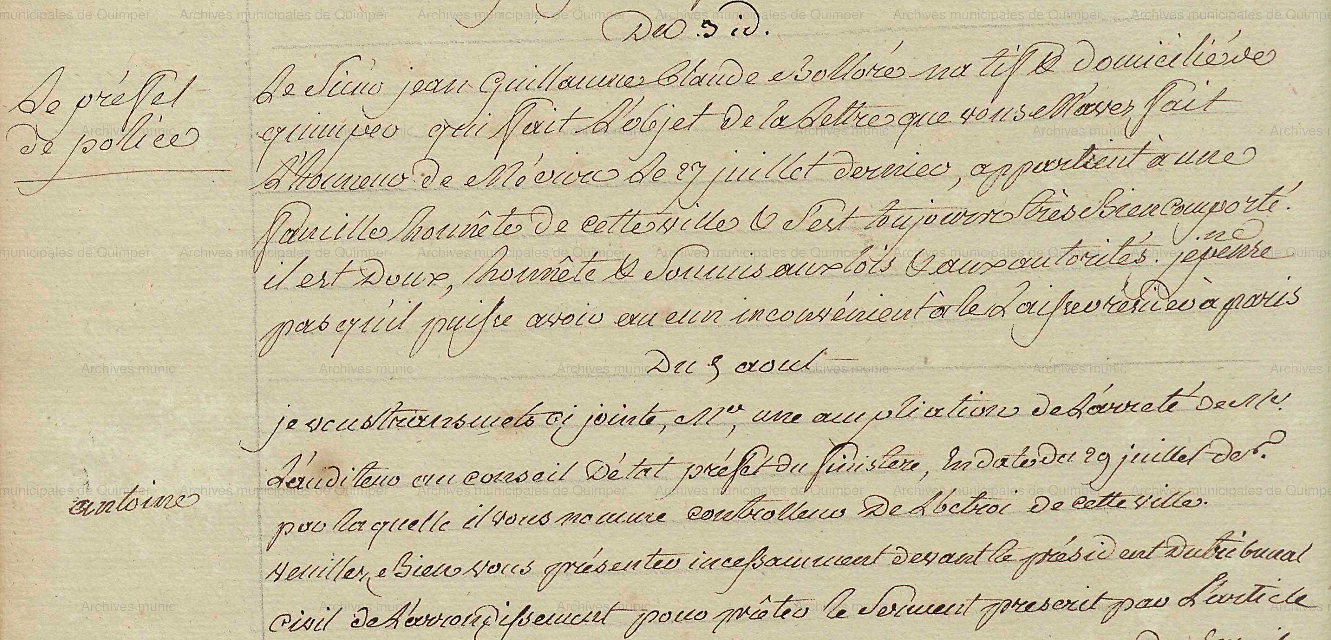 Du 3 id.
Le préfet
de police
Le Sieur jean Guillaume Claude Bolloré natif & domicilié de
quimper qui fait L'objet de la Lettre que vous M'avez fait
L'honneur de M'écrire Le 27 juillet dernier, appartient à une
famille honnête de cette ville & s'est toujours très Bien comporté.
il est Doux, honnête & soumis aux lois & aux autorités. je ne pense
pas qu'il puisse avoir aucun inconvénient à le Laisser résider à paris
Du 5 aout
antoine
je vous transmets ci jointe, Mr, une ampliation de L'arreté de Mr.
L'auditeur au conseil D'état préfet du finistere, En date du 29 juillet der.
par laquelle il vous nomme controlleur De L'octroi de cette ville.
veuillez Bien vous présenter incessamment devant le président Du tribunal
civil de L'arrondissement pour prêter le Serment prescrit par L'article
Archives municipales de Quimper